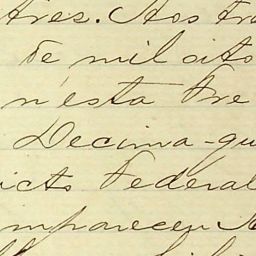 tres. Aos tra
de mil oito
n'esta Pre
Decima-qu
icto Federal
mpareceu A